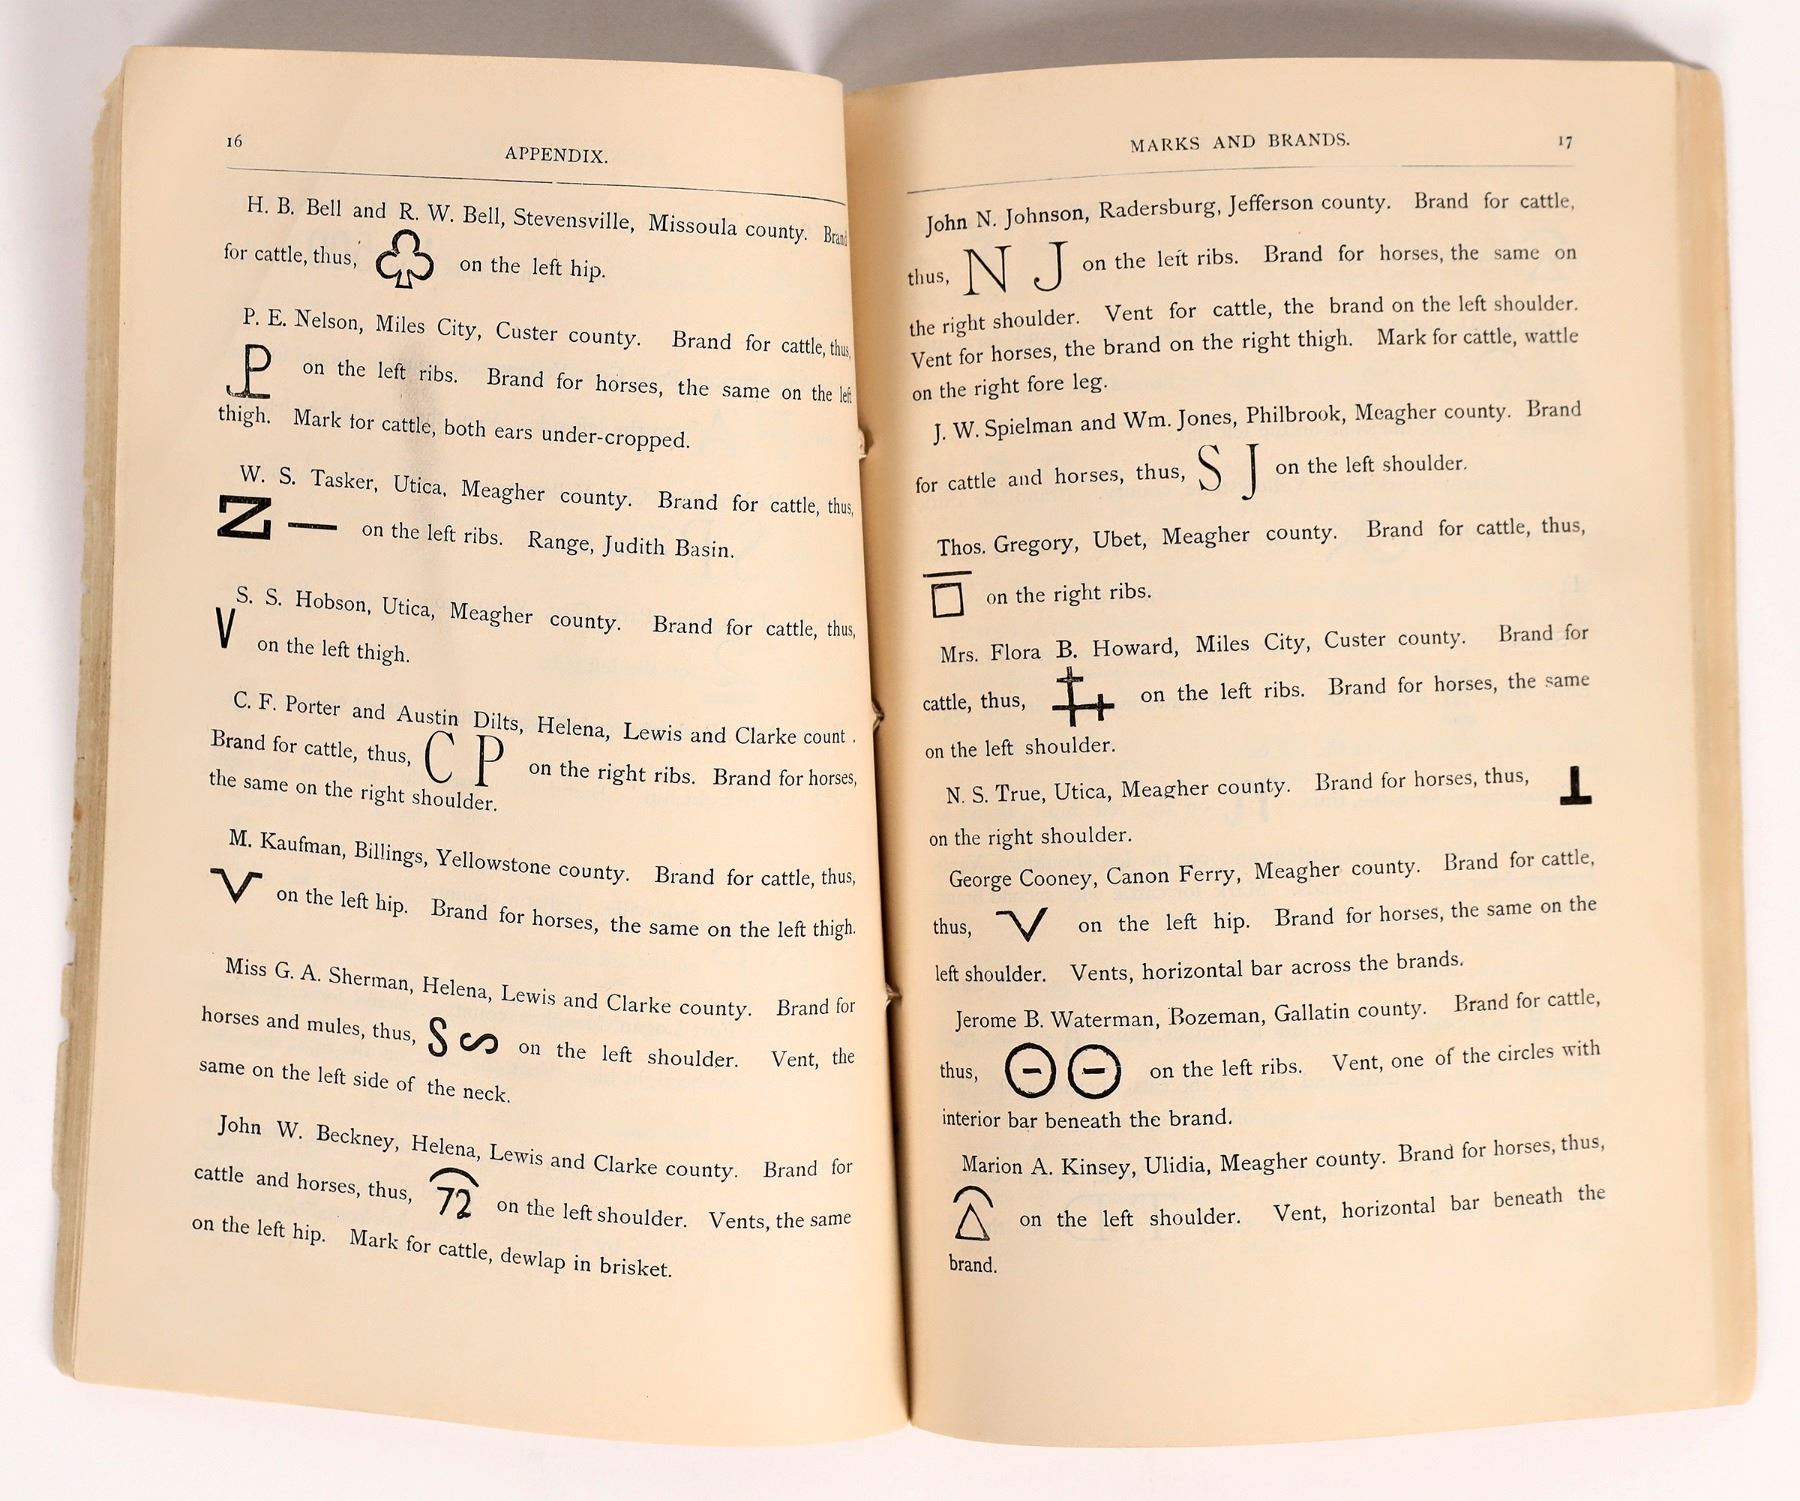 16
APPENDIX.
H. B. Bell and R. W. Bell, Stevensville, Missoula county. Brand
for cattle, thus, on the left hip.
P. E. Nelson, Miles City, Custer county. Brand for cattle, thus,
P on the left ribs. Brand for horses, the same on the left
thigh. Mark for cattle, both ears under-cropped.
W. S. Tasker, Utica, Meagher county. Brand for cattle, thus,
Z — on the left ribs. Range, Judith Basin.
S. S. Hobson, Utica, Meagher county. Brand for cattle, thus,
V on the left thigh.
C. F. Porter and Austin Dilts, Helena, Lewis and Clarke count .
Brand for cattle, thus, C P on the right ribs. Brand for horses,
the same on the right shoulder.
M. Kaufman, Billings, Yellowstone county. Brand for cattle, thus,
V on the left hip. Brand for horses, the same on the left thigh.
Miss G. A. Sherman, Helena, Lewis and Clarke county. Brand for
horses and mules, thus, S S on the left shoulder. Vent, the
same on the left side of the neck.
John W. Beckney, Helena, Lewis and Clarke county. Brand for
cattle and horses, thus, 72 on the left shoulder. Vents, the same
on the left hip. Mark for cattle, dewlap in brisket.
MARKS AND BRANDS.
17
John N. Johnson, Radersburg, Jefferson county. Brand for cattle,
thus, N J on the left ribs. Brand for horses, the same on
the right shoulder. Vent for cattle, the brand on the left shoulder.
Vent for horses, the brand on the right thigh. Mark for cattle, wattle
on the right fore leg.
J. W. Spielman and Wm. Jones, Philbrook, Meagher county. Brand
for cattle and horses, thus, S J on the left shoulder.
Thos. Gregory, Ubet, Meagher county. Brand for cattle, thus,
on the right ribs.
Mrs. Flora B. Howard, Miles City, Custer county. Brand for
cattle, thus, on the left ribs. Brand for horses, the same
on the left shoulder.
N. S. True, Utica, Meagher county. Brand for horses, thus,
on the right shoulder.
George Cooney, Canon Ferry, Meagher county. Brand for cattle,
thus, V on the left hip. Brand for horses, the same on the
left shoulder. Vents, horizontal bar across the brands.
Jerome B. Waterman, Bozeman, Gallatin county. Brand for cattle,
thus, on the left ribs. Vent, one of the circles with
interior bar beneath the brand.
Marion A. Kinsey, Ulidia, Meagher county. Brand for horses, thus,
on the left shoulder. Vent, horizontal bar beneath the
brand.